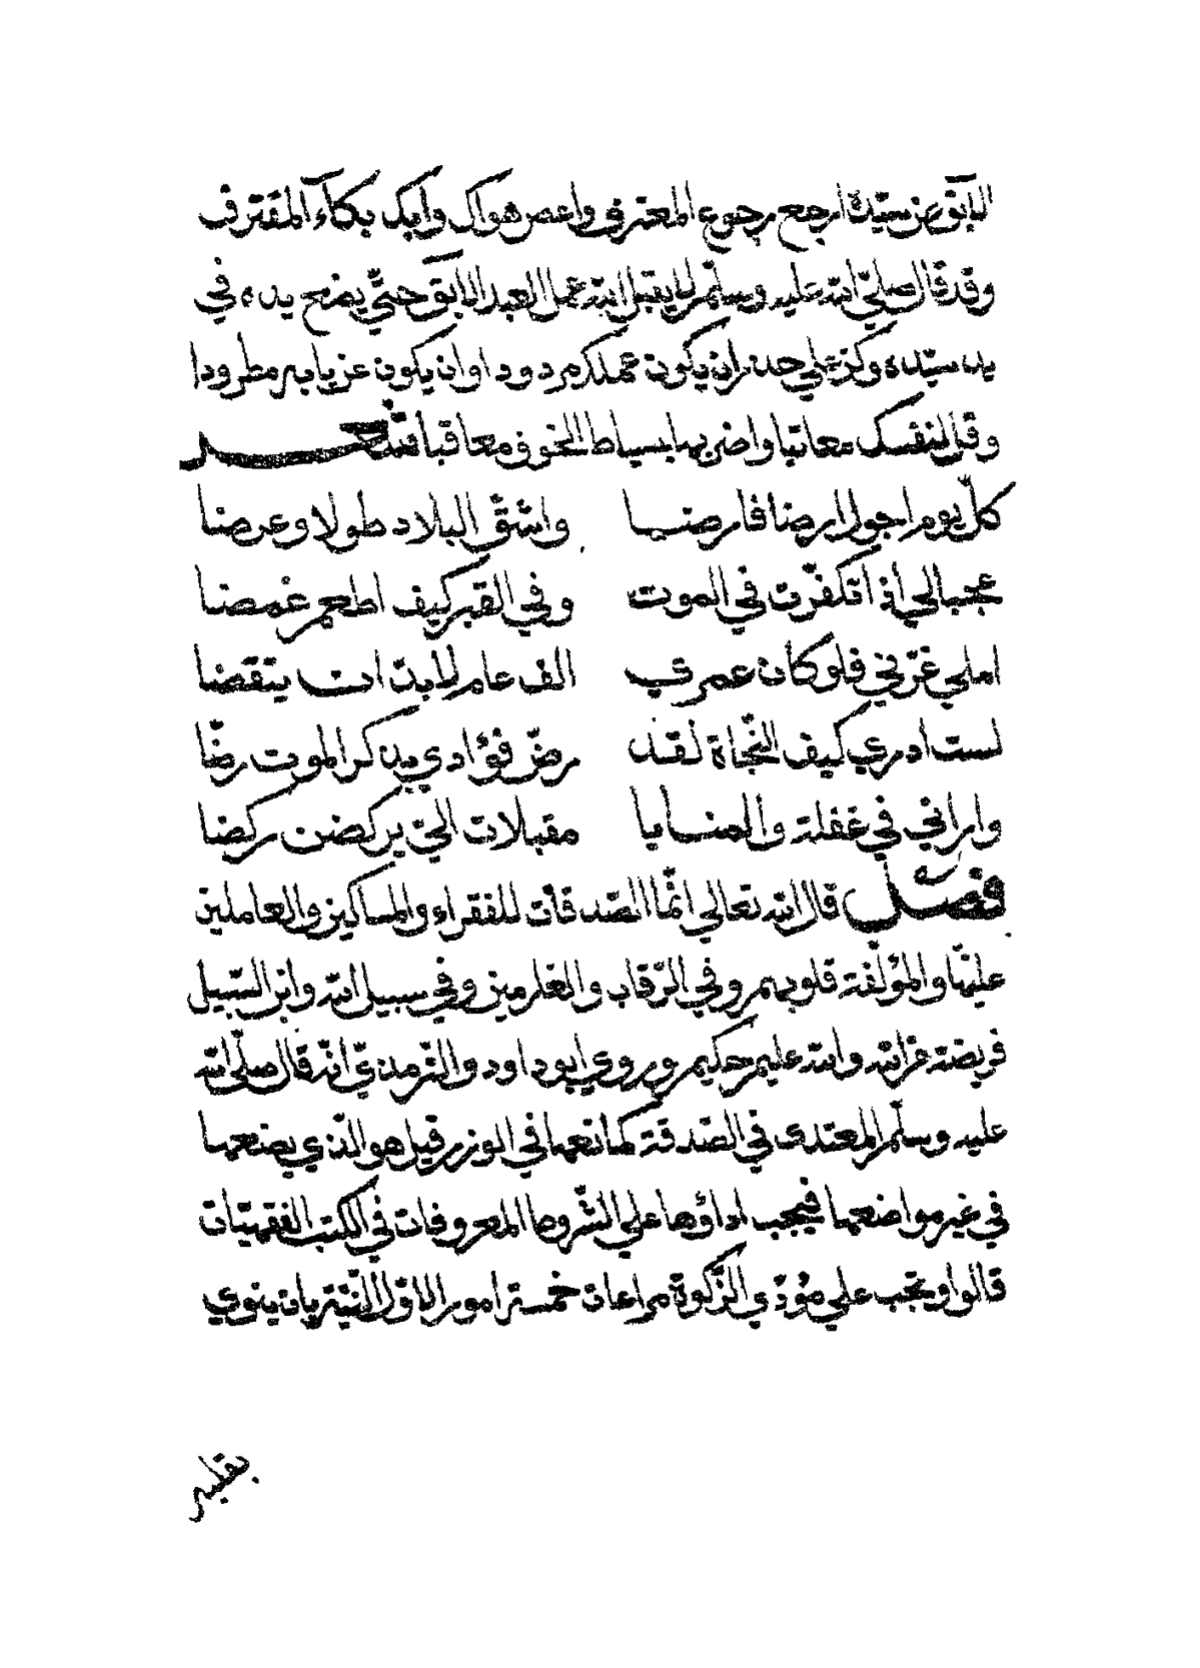 الآبق من سيّده ارجع رجوع المعترف واعص هواك وابك بكآء المقترف
وقد قال صلّي الله عليه وسلّم لا يقبل الله عمل العبد الآبق حتّي يضع يده في
يد سيّده وكن علي حذر ان يكون عملك مردودا وان يكون عن بابه مطرودا
وقل لنفسك معاتبا واضربها بسياط الخوف معاقبا شعر
كلّ يوم اجول ارضا فارضا واشقّ البلاد طولا وعرضا
عجبا لي اذا تكفّرت في الموت وفي القبر كيف اطعم غمضا
املي غرّني فلو كان عمري الف عام لا بدّ ان يتقضا
لست ادري كيف النّجاة لقد رضّ فؤادي من ذكر الموت رضّا
واراني في غفلة والمنايا مقبلات اليّ يركضن ركضا
فصل قال الله تعالي انّما الصّدقات للفقراء والمساكين والعاملين
عليها والمؤلّفة قلوبهم وفي الرّقاب والغارمين وفي سبيل الله وابن السّبيل
فريضة من الله والله عليم حكيم وروي ابو داود والترمذيّ انّه قال صلّي الله
عليه وسلّم المعتدى في الصّدقة كمانعها في الوزر قيل هو الّذي يضعها
في غير مواضعها فيجب اداؤها علي الشّروط المعروفات في الكتب الفقهيّات
قالوا ويجب علي مؤدّي الزّكوة مراعات خمسة امور الاوّل النّيّة بان ينوي
بقلبه